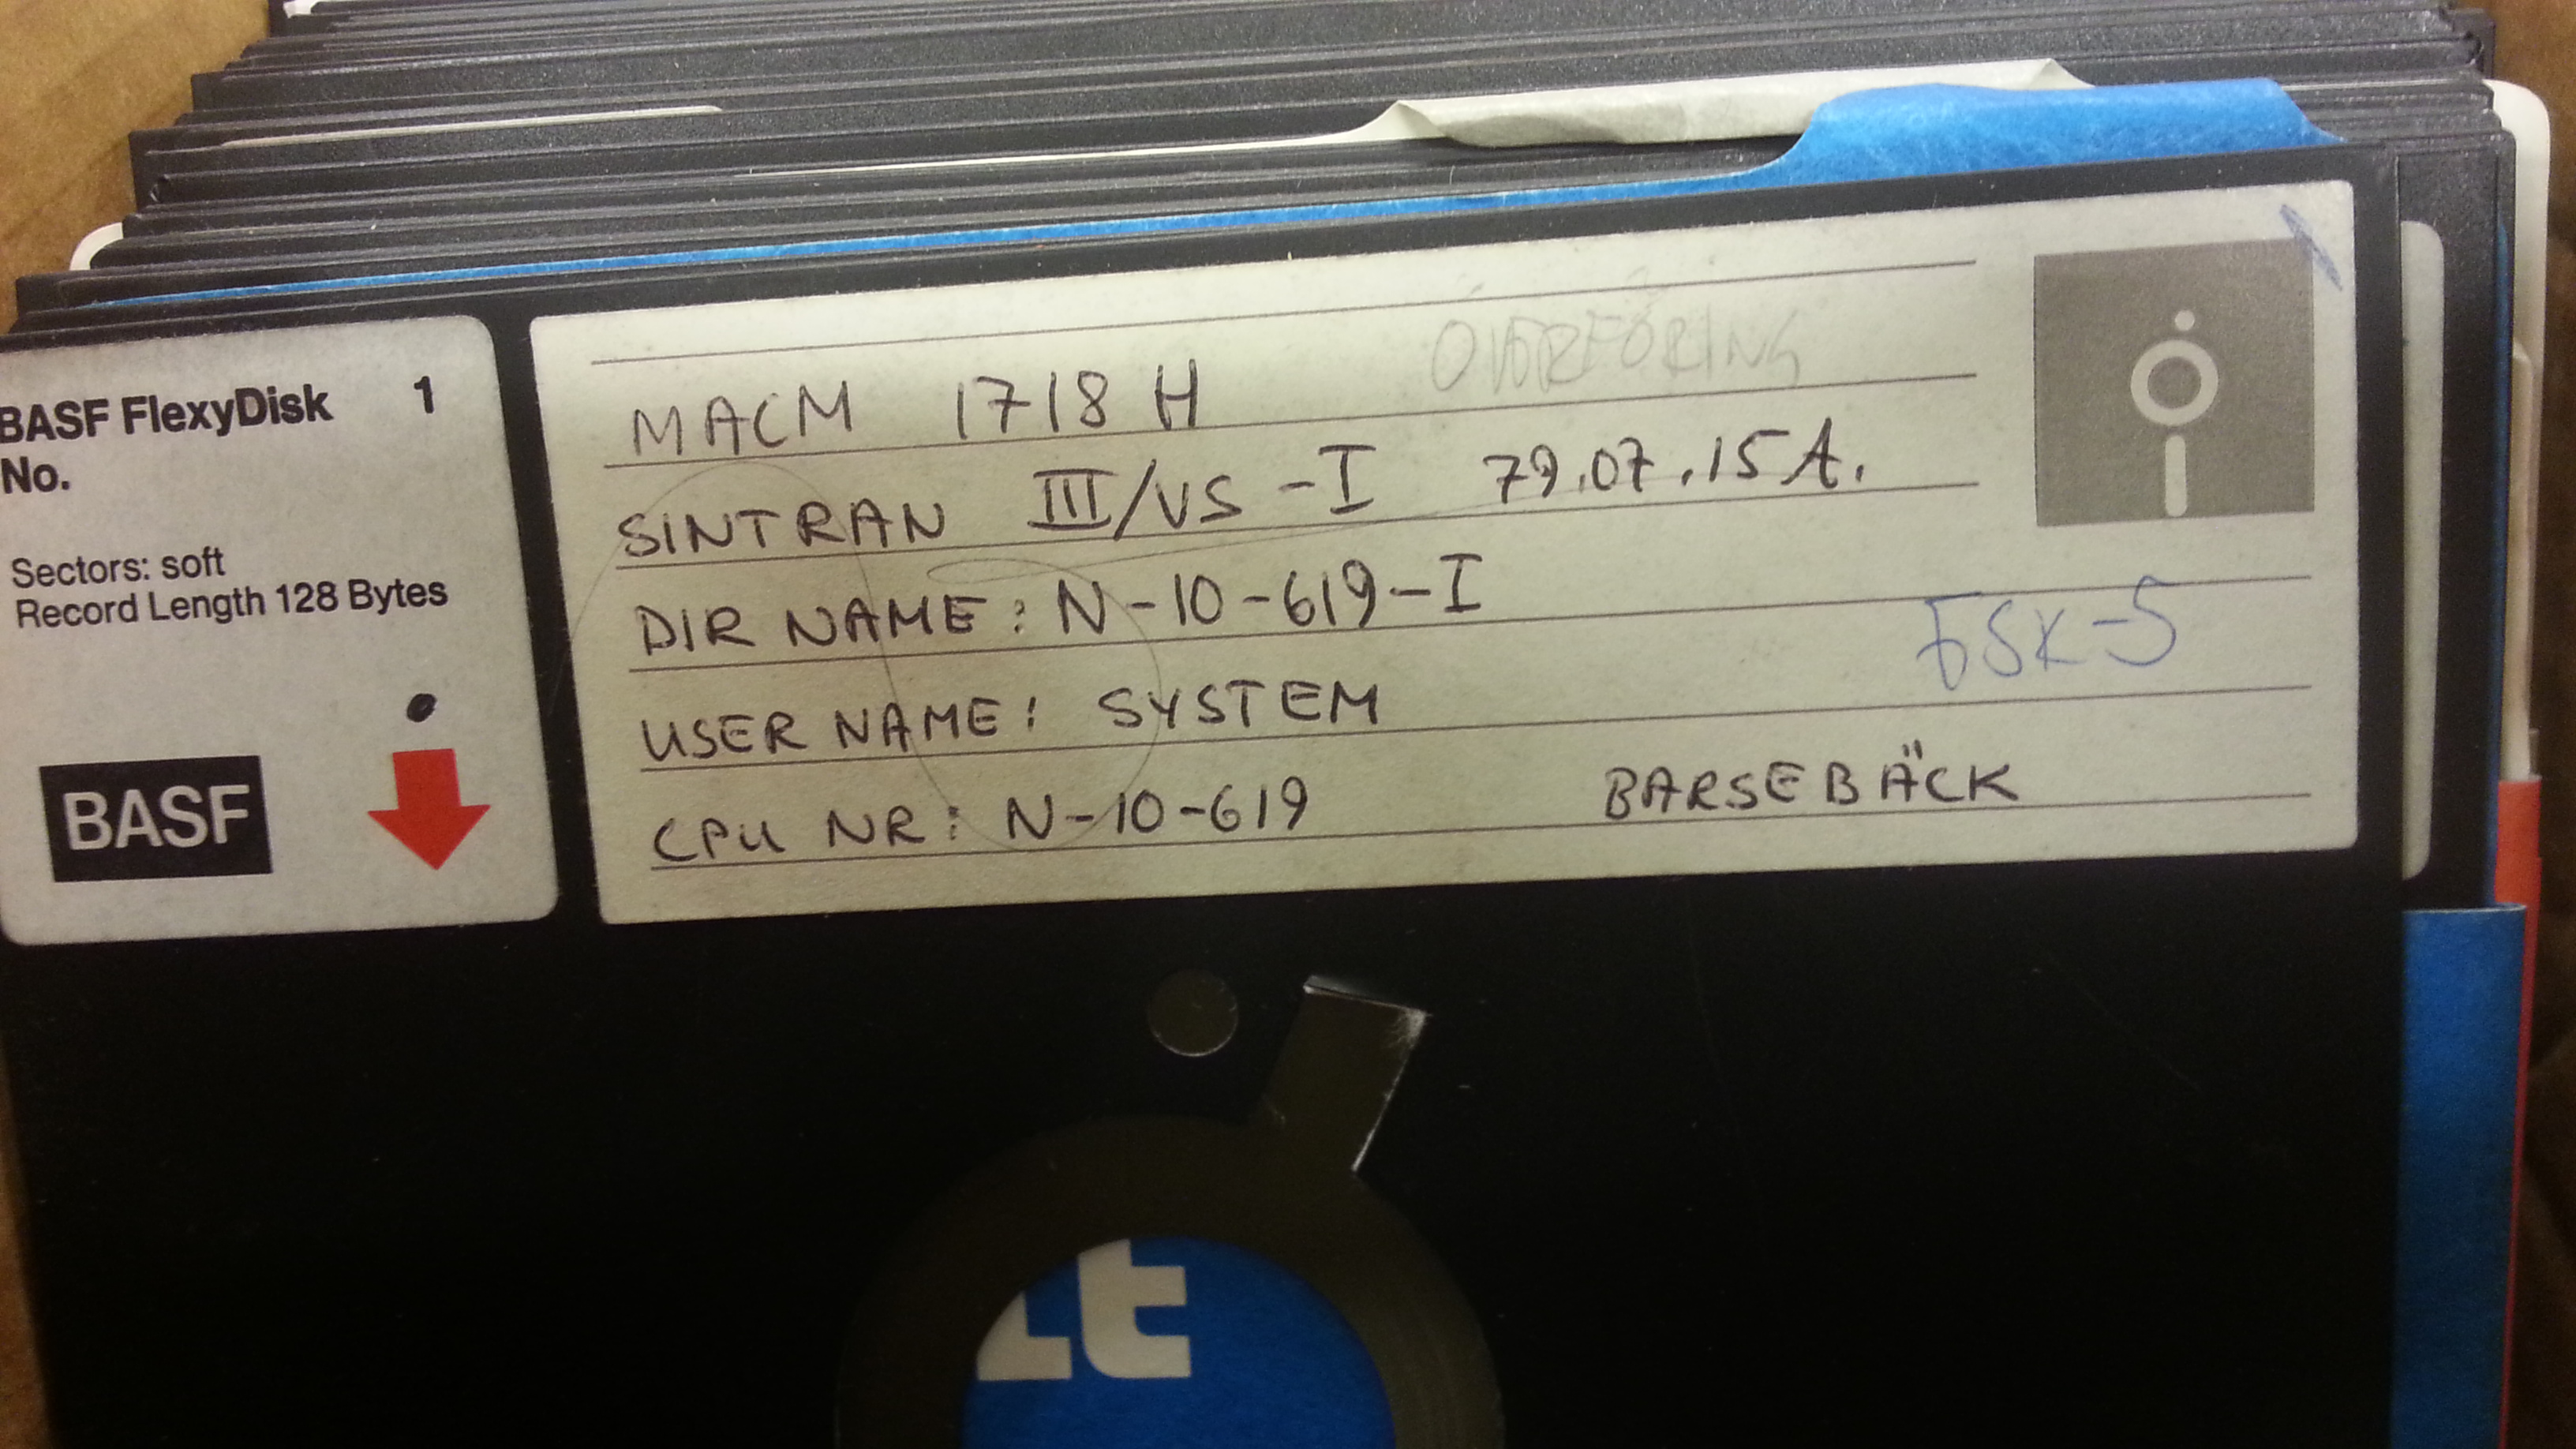 BASF FlexyDisk 1
No.
Sectors: soft
Record Length 128 Bytes
BASF
ÖVERFÖRING
MACM 1718 H
SINTRAN III/VS - I 79.07.15 A.
DIR NAME: N-10-619-I
FSK-5
USER NAME: SYSTEM
CPU NR: N-10-619 BARSEBÄCK